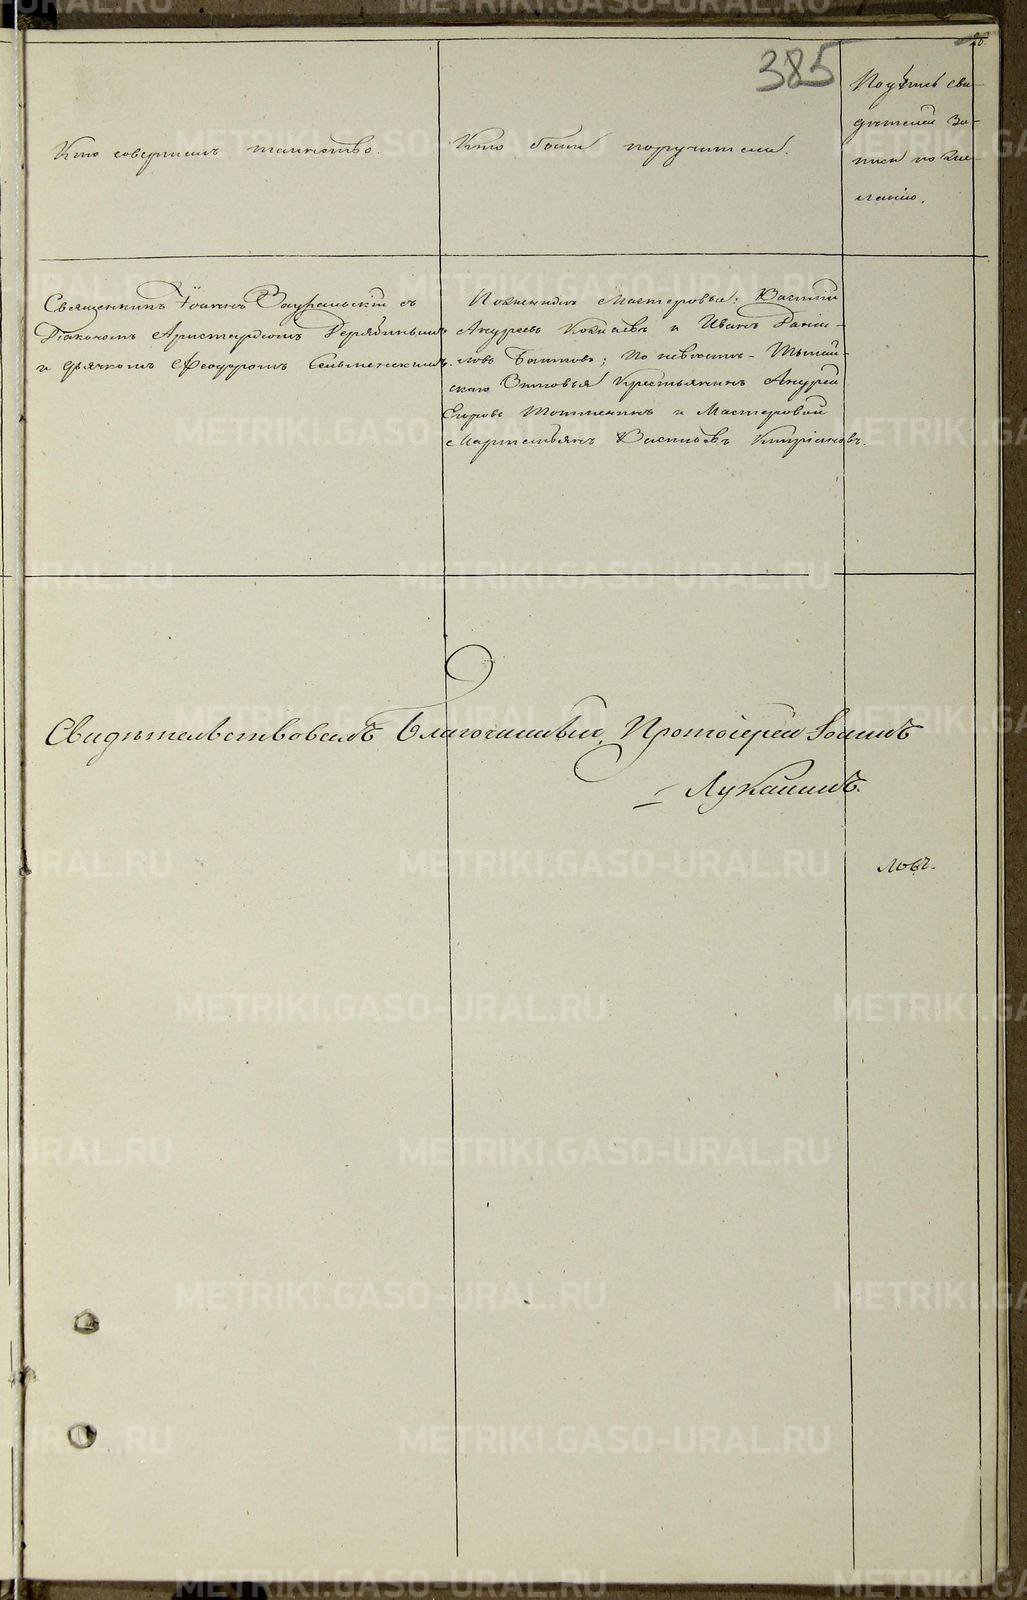 385
26.
Кто совершалъ таинство.
Кто были поручители.
Подпись сви-
дѣтелей за-
писи по же-
ланію.
Священникъ Іоаннъ Зауральскій съ
Діакономъ Аристархомъ Дерябинымъ
и дьячкомъ Ѳеодоромъ Сельменскимъ.
По женихѣ Мастеровые: Василій
Андреевъ и Иванъ Даніи-
ловъ; По невѣстѣ -
скаго Крестьянинъ Андрей
Егоровъ и Мастеровой
Василіевъ Кипріановъ.
Свидѣтельствовалъ Благочинный, Протоіерей Іоаннъ
Лукашинъ.
ловъ.
METRIKI.GASO-URAL.RU